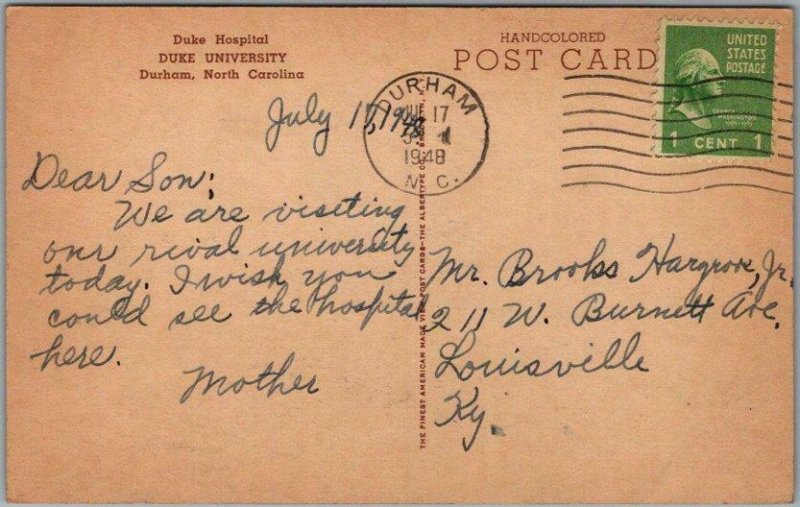 Duke Hospital
DUKE UNIVERSITY
Durham, North Carolina
HANDCOLORED
POST CARD
UNITED
STATES
POSTAGE
GEORGE
WASHINGTON
1 CENT 1
DURHAM
JUL 17
1948
N.C.
July 17, 1948
Dear Son:
We are visiting
our rival university
today. I wish you
could see the hospital
here.
Mother
THE FINEST AMERICAN MADE VIEW POST CARDS—THE ALBERTYPE CO.,
Mr. Brooks Hargrove, Jr.
211 W. Burnett Ave.
Louisville
Ky.